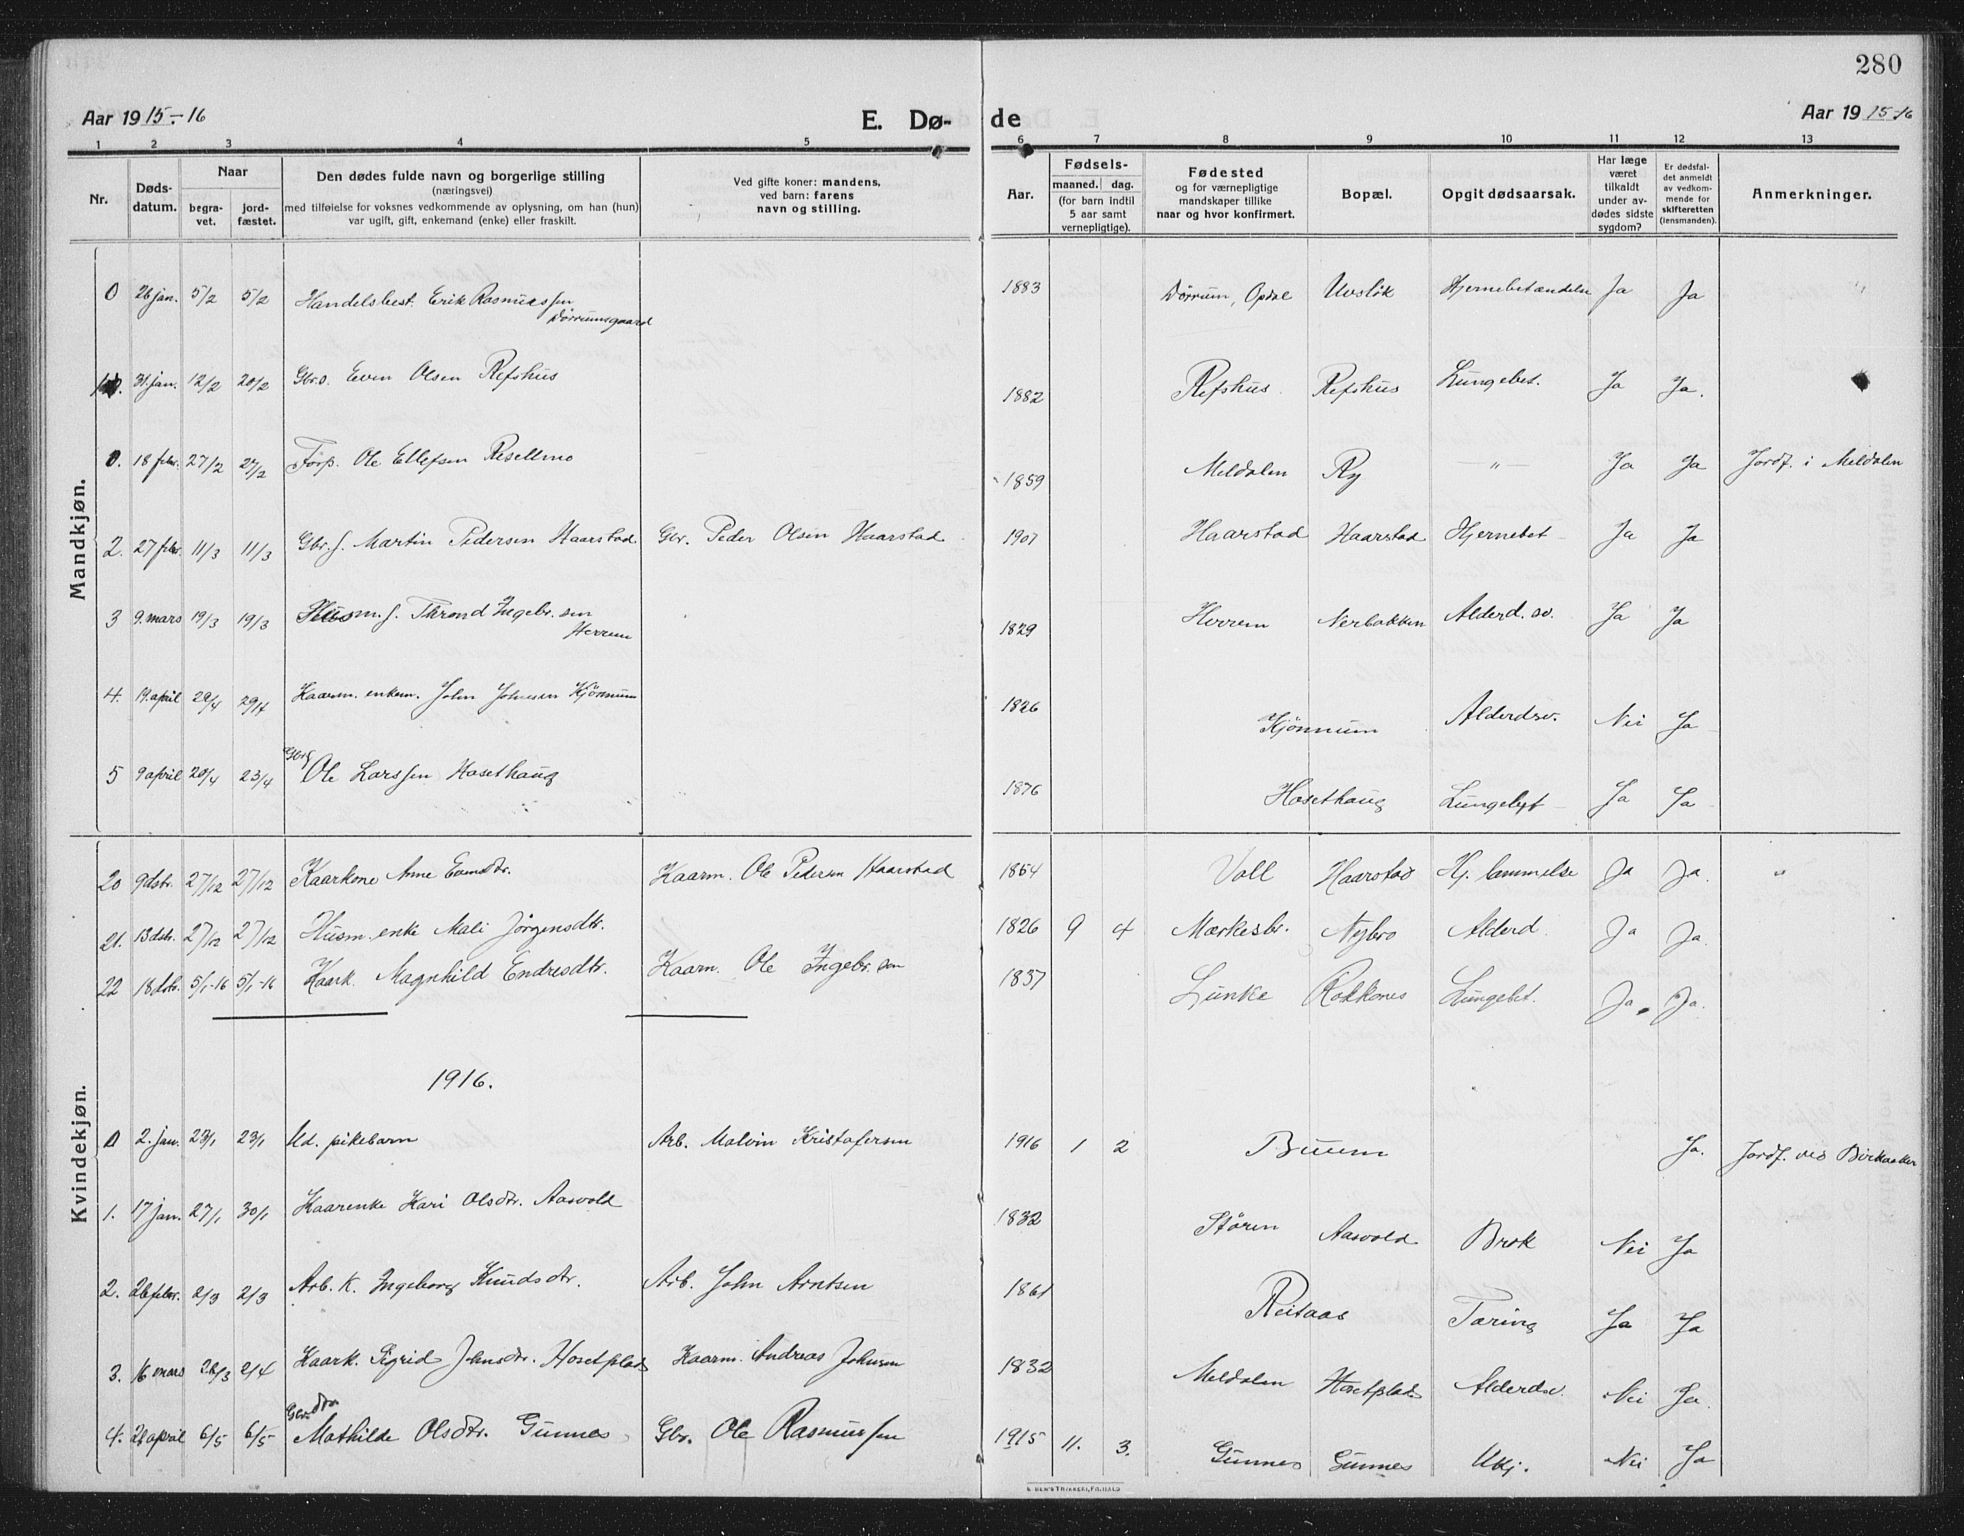 280
Aar 1915-16
E. Dø-
de
Aar 1915-16
1 2 3 4 5 6 7 8 9 10 11 12 13
Nr.
Døds-
datum.
Naar
begra-
vet.
jord-
fæstet.
Den dødes fulde navn og borgerlige stilling
(næringsvei)
med tilføielse for voksnes vedkommende av oplysning, om han (hun)
var ugift, gift, enkemand (enke) eller fraskilt.
Ved gifte koner: mandens,
ved barn: farens
navn og stilling.
Aar.
Fødsels-
maaned. dag.
(for barn indtil
5 aar samt
vernepligtige).
Fødested
og for værnepligtige
mandskaper tillike
naar og hvor konfirmert.
Bopæl.
Opgit dødsaarsak.
Har læge
været
tilkaldt
under av-
dødes sidste
sygdom?
Er dødsfal-
det anmeldt
av vedkom-
mende for
skifteretten
(lensmanden).
Anmerkninger.
Mandkjøn.
0 26 jan. 5/2 5/2 Handelsbest. Erik Rasmussen Dørrumsgaard 1883 Dørrum, Opdal Uvslök Hjernebetændelse Ja Ja
31. jan. 12/2 20/2 Gbr. Even Olsen Refshus 1882 Refshus Refshus Lungebet. Ja Ja.
0. 18 febr. 27/2 27/2 Forp. Ole Ellefsen Resellmo 1859 Meldalen Ry -"- Ja Ja Jordf. i Meldalen
2. 27 febr. 11/3 11/3 Gbr. s. Martin Pedersen Haarstad Gbr. Peder Olsen Haarstad 1907 Haarstad Haarstad Hjernebet Ja Ja
3 9. mars 19/3 19/3 Husm. s. Thrond Ingebr.sen Herrem 1829 Herrem Nerbakken Alderd. sv. Ja Ja
4. 14. april 29/4 29/4 Kaarm. enkem. John Johnsen Kjönnum 1826 Kjönnum Alderdsv. Nei Ja
5 9 april 20/4 23/4 Gbr Ole Larssen Hosethaug 1876 Hosethaug Lungebet Ja Ja
Kvindekjøn.
20 9 dsbr. 27/12 27/12 Kaarkone Anne Evensdtr. Kaarm. Ole Pedersen Haarstad 1854 Voll Haarstad Hj. lammelse Ja Ja. "
21. 13 dsbr. 27/12 27/12 Husm. enke Mali Jørgensdtr. 1826 9 4 Mærkesbr. Nybro Alderd. Ja Ja.
22 18 dsb. 5/1-16 5/1-16 Kaark. Magnhild Endresdtr. Kaarm. Ole Ingebr.sen 1837 Lunke Rokkones Lungebet. Ja. Ja.
1916.
0 2. jan. 23/1 23/1 Ud. pikebarn Arb. Malvin Kristofersen 1916 1 2 Buum Ja. Jordf. ved Birkaaker
1. 17 jan. 27/1 30/1 Kaarenke Kari Olsdtr. Aasvold 1832 Støren Aasvold Brok Nei Ja
2. 26 febr. 2/3 2/3 Arb. k. Ingeborg Knudsdtr. Arb. John Arntsen 1861 Reitaas Tæring Ja Ja
3. 16 mars 26/3 2/4 Kaark. Sigrid Johnsdtr. Hosetplads Kaarm. Andreas Johnsen 1832 Meldalen Hosetplads Alderdsv. Nei Ja.
4. 28 april 6/5 6/5 Gbr dtr Mathilde Olsdtr. Gunnes Gbr. Ole Rasmussen 1915 11. 3. Gunnes Gunnes Ukj. Nei Ja